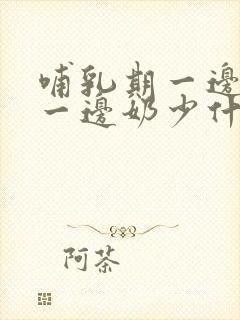 哺乳期一邊
一邊奶少什
阿茶